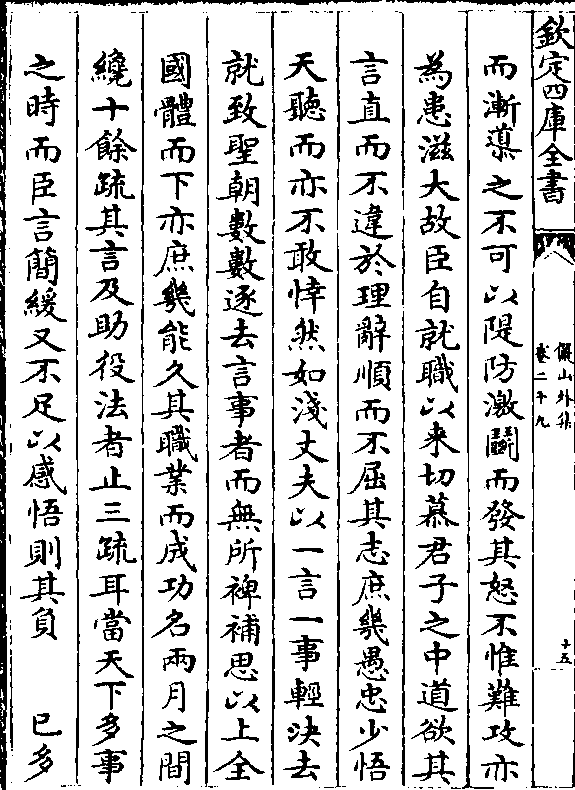 欽定四庫全書
儼山外集
卷二十九
十五
而漸導之不可以隄防激鬭而發其怒不惟難攻亦
為患滋大故臣自就職以来切慕君子之中道欲其
言直而不違於理辭順而不屈其志庶幾愚忠少悟
天聽而亦不敢悻然如淺丈夫以一言一事輕決去
就致聖朝數數逐去言事者而無所裨補思以上全
國體而下亦庶幾能久其職業而成功名兩月之間
纔十餘疏其言及助役法者止三疏耳當天下多事
之時而臣言簡緩又不足以感悟則其負　　已多